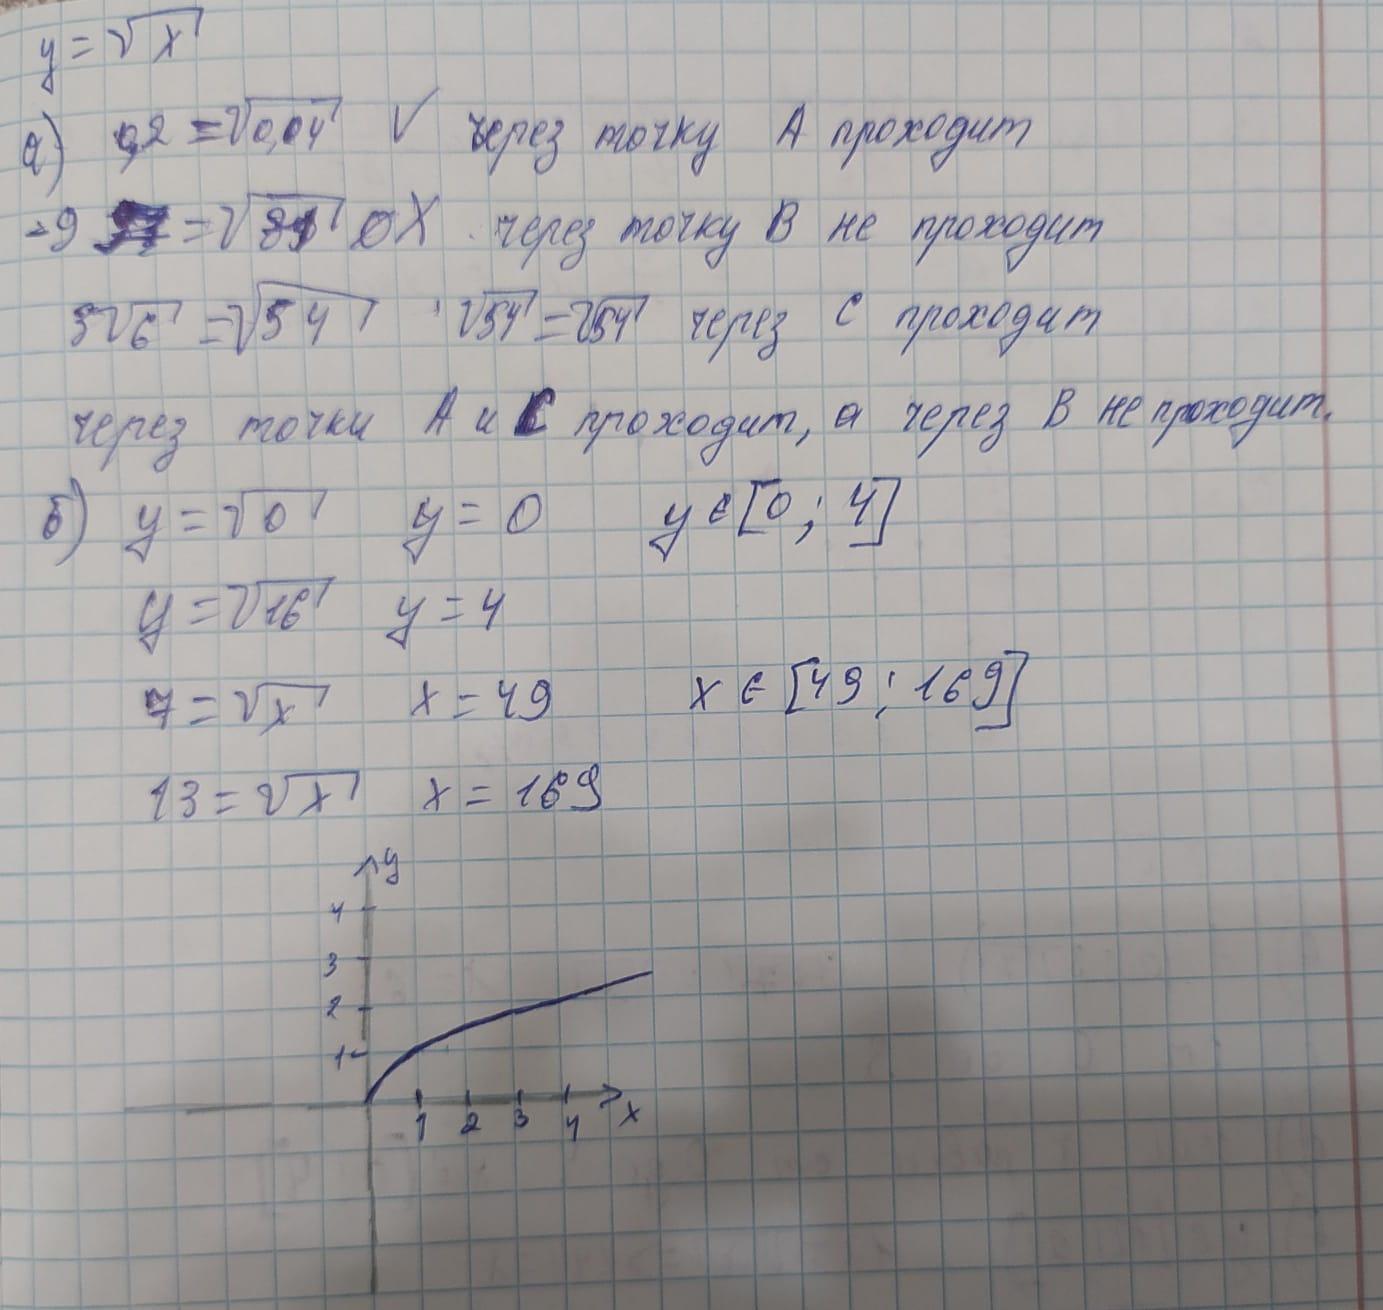 y = √x
а) 0,2 = √0,04 ✓ через точку A проходит
-9 = √81 ∅ X через точку B не проходит
3√6 = √54 √54 = √54 через C проходит
через точки A и C проходит, а через B не проходит.
б) y = √0 y = 0 y ∈ [0; 4]
y = √16 y = 4
7 = √x x = 49 x ∈ [49; 169]
13 = √x x = 169
y
4
3
2
1
1 2 3 4 x